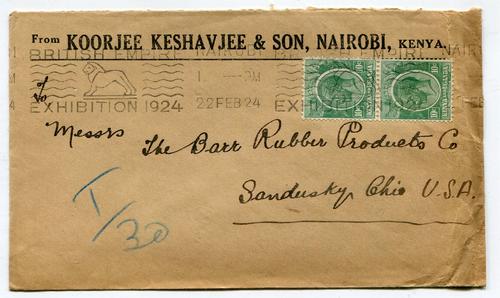 From KOORJEE KESHAVJEE & SON, NAIROBI, KENYA.
BRITISH EMPIRE NAIROBI BRITISH EMPIRE NAIROBI
EXHIBITION 1924 22 FEB 24 EXHIBITION
Messrs
The Barr Rubber Products Co
Sandusky Ohio U.S.A.
T/30